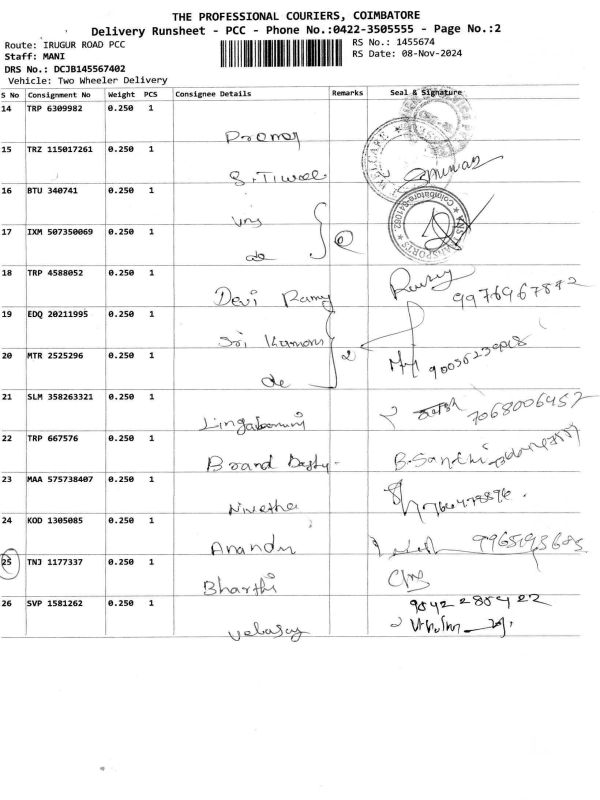 THE PROFESSIONAL COURIERS, COIMBATORE
Delivery Runsheet - PCC - Phone No.:0422-3505555 - Page No.:2
Route: IRUGUR ROAD PCC
RS No.: 1455674
Staff: MANI
RS Date: 08-Nov-2024
DRS No.: DCJB145567402
Vehicle: Two Wheeler Delivery
S No Consignment No Weight PCS Consignee Details Remarks Seal & Signature
14 TRP 6309982 0.250 1
15 TRZ 115017261 0.250 1
WELCARE
S. Tiwal
16 BTU 340741 0.250 1
Coimbatore-641062.
17 IXM 507350069 0.250 1
de
18 TRP 4588052 0.250 1
Devi Ramy
9976967872
19 EDQ 20211995 0.250 1
Sri Kumaran 2
20 MTR 2525296 0.250 1
de
21 SLM 358263321 0.250 1
7068006457
22 TRP 667576 0.250 1
Brand B.Santhi
23 MAA 575738407 0.250 1
Nivetha
24 KOD 1305085 0.250 1
Anandu
25 TNJ 1177337 0.250 1
Bharthi
26 SVP 1581262 0.250 1
9842280422
Velusay